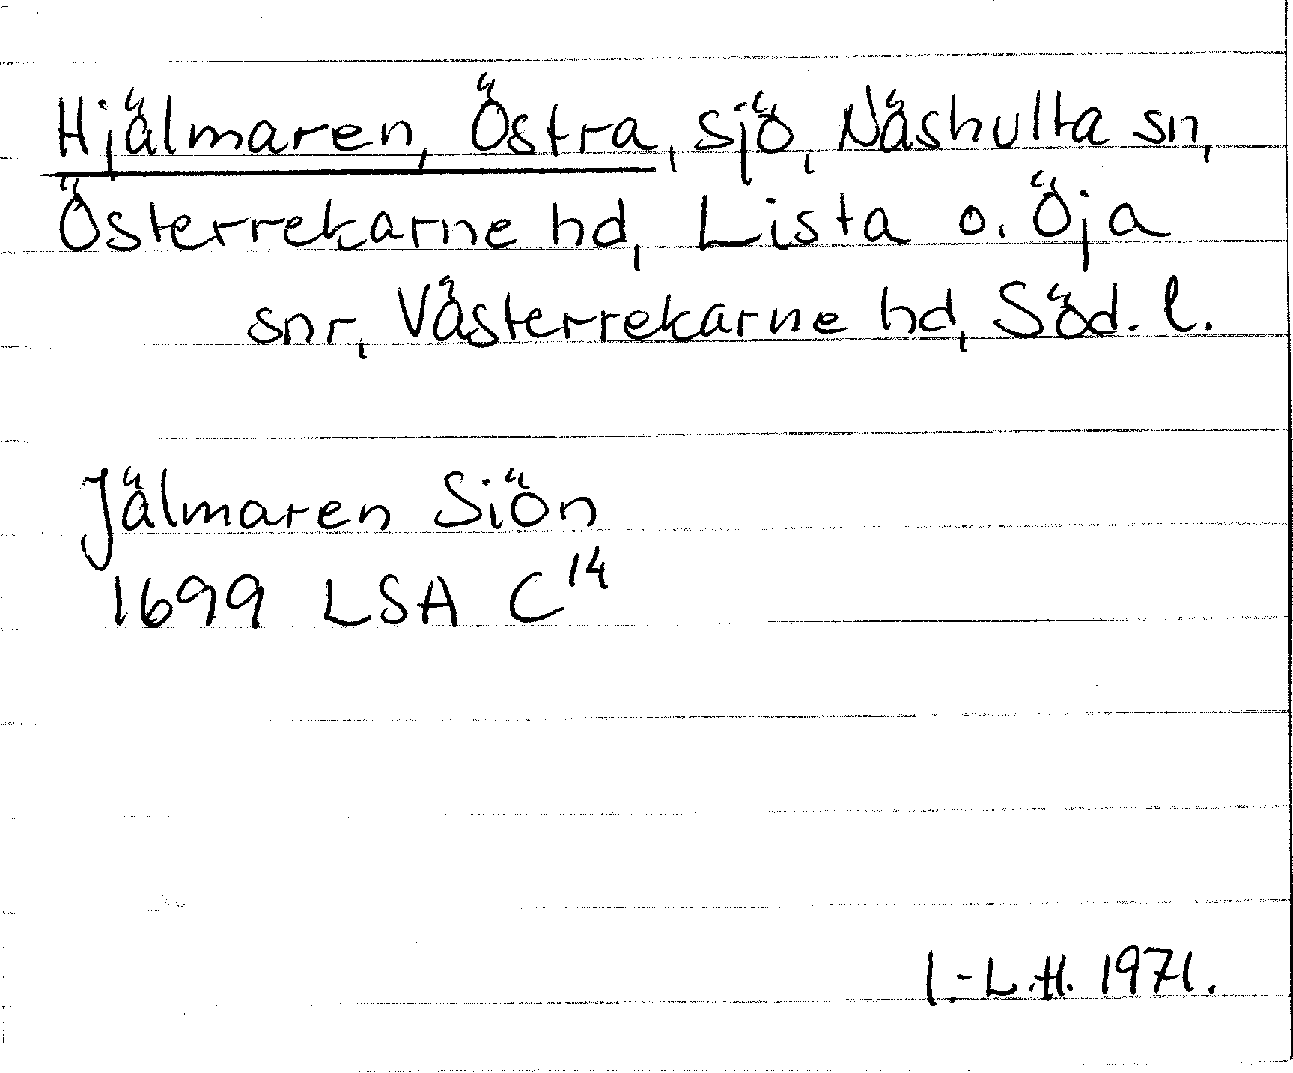 Hjälmaren, Östra, sjö, Näshulta sn,
Österrekarne hd, Lista o. Öja
snr, Västerrekarne hd, Söd. l.
Jälmaren Siön
1699 LSA C¹⁴
I.-L.H. 1971.